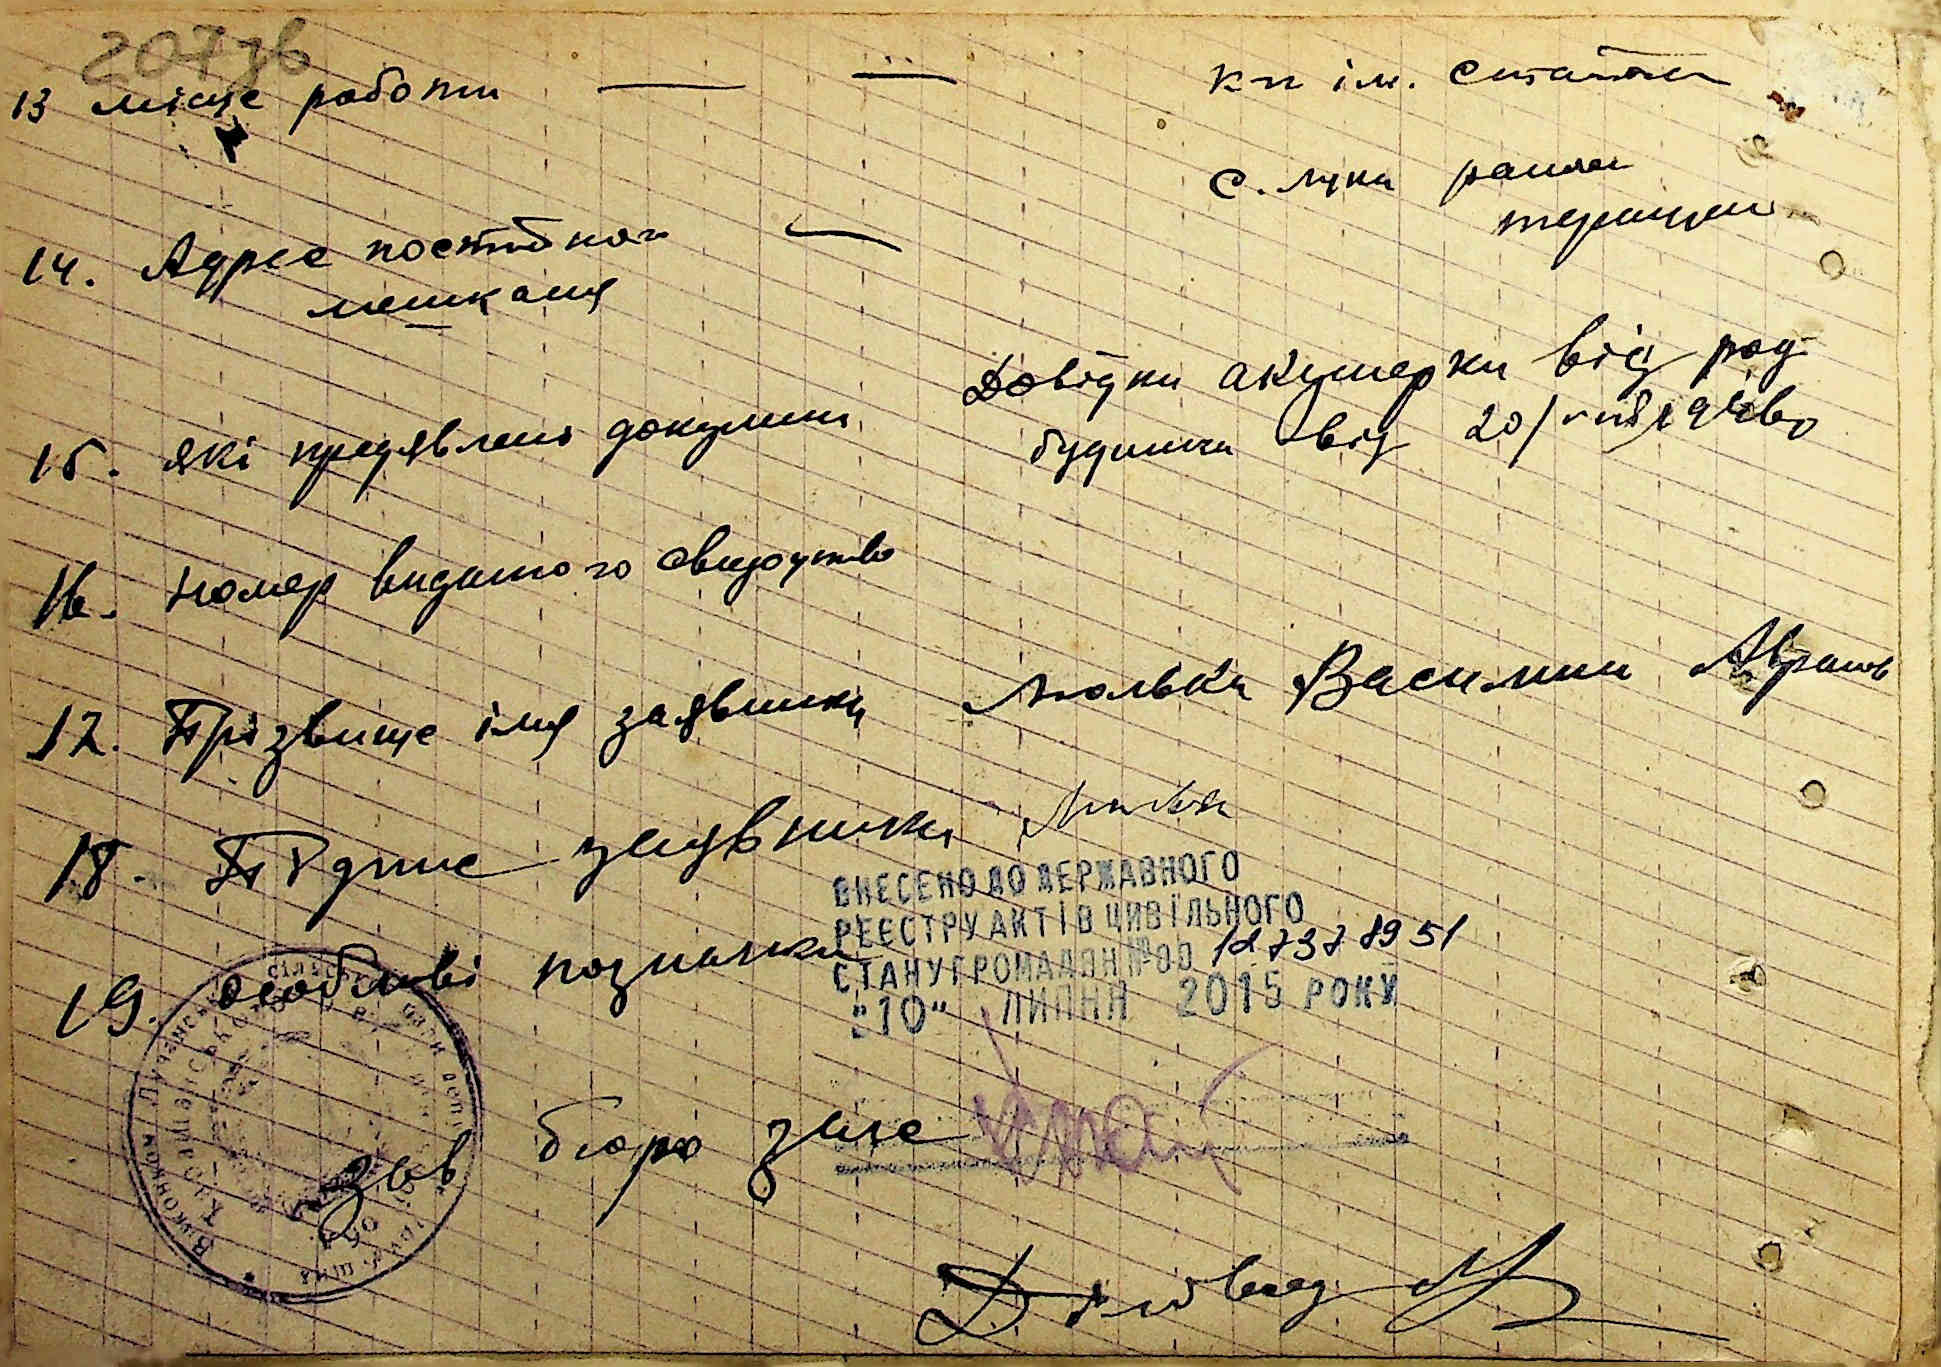 207 зв
13 місце роботи — — кп ім. Сталіна
с. Лука района
14. Адрес постійного
мешканя
15. які предявлено документи Довідки акушерки від род
будинка від 20/
16. Номер виданого свидоцтва
17. Прізвище імя заявника Люлька Василина Аврамов
18. Підпис заявника Люлька
ВНЕСЕНО ДО ДЕРЖАВНОГО
РЕЄСТРУ АКТІВ ЦИВІЛЬНОГО
СТАНУ ГРОМАДЯН №00 127378951
"10" ЛИПНЯ 2015 РОКУ
19. Особливі позначки
Зав бюро загс